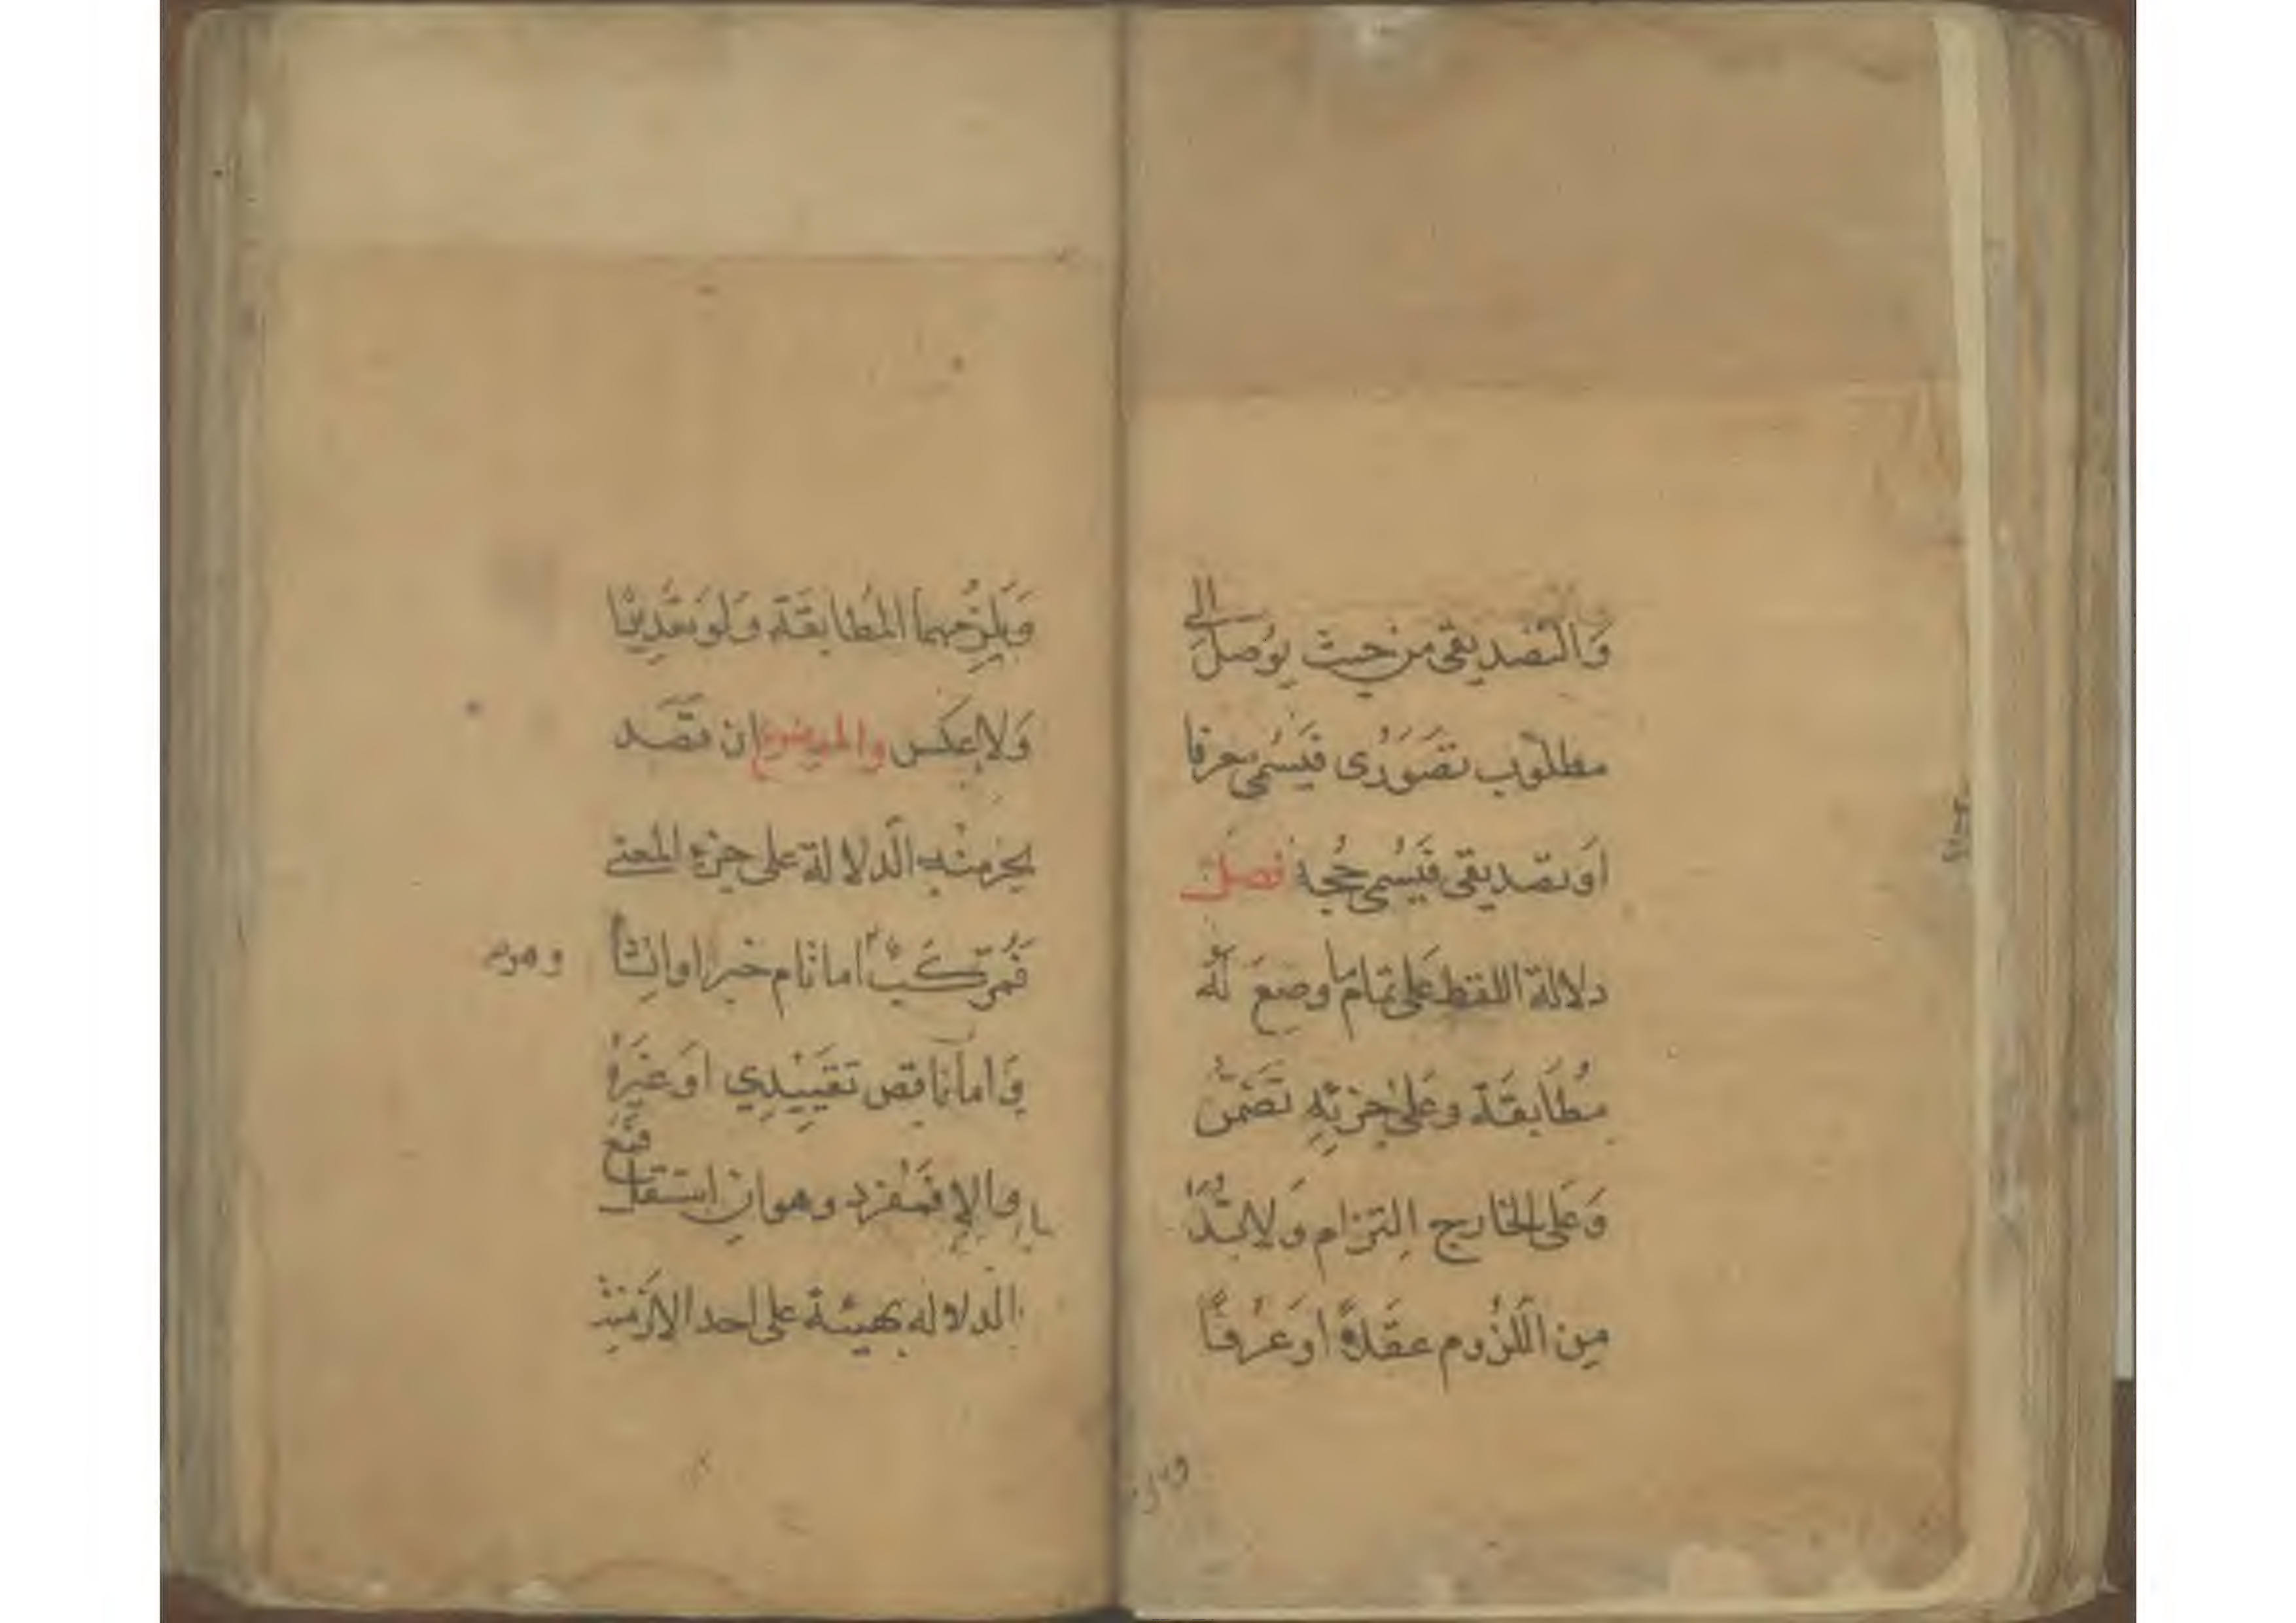 والتصديقى من حيث يوصل الى
مطلوب تصورى فيسمى معرفا
او تصديقى فيسمى حجة فصل
دلالة اللفظ على تمام ما وضع له
مطابقة وعلى جزئه تضمن
وعلى الخارج التزام ولا بد
من اللزوم عقلا او عرفا
ويلز
ويلزمهما المطابقة ولو تقديرا
ولا عكس والموضوع ان قصد
بجزء منه الدلالة على جزء المعنى
فمركب اما تام خبر او انشا
وهو
واما ناقص تقييدي او غيره
والا فمفرد وهو ان استقل فمع
الدلاله بهيئة على احد الازمنة